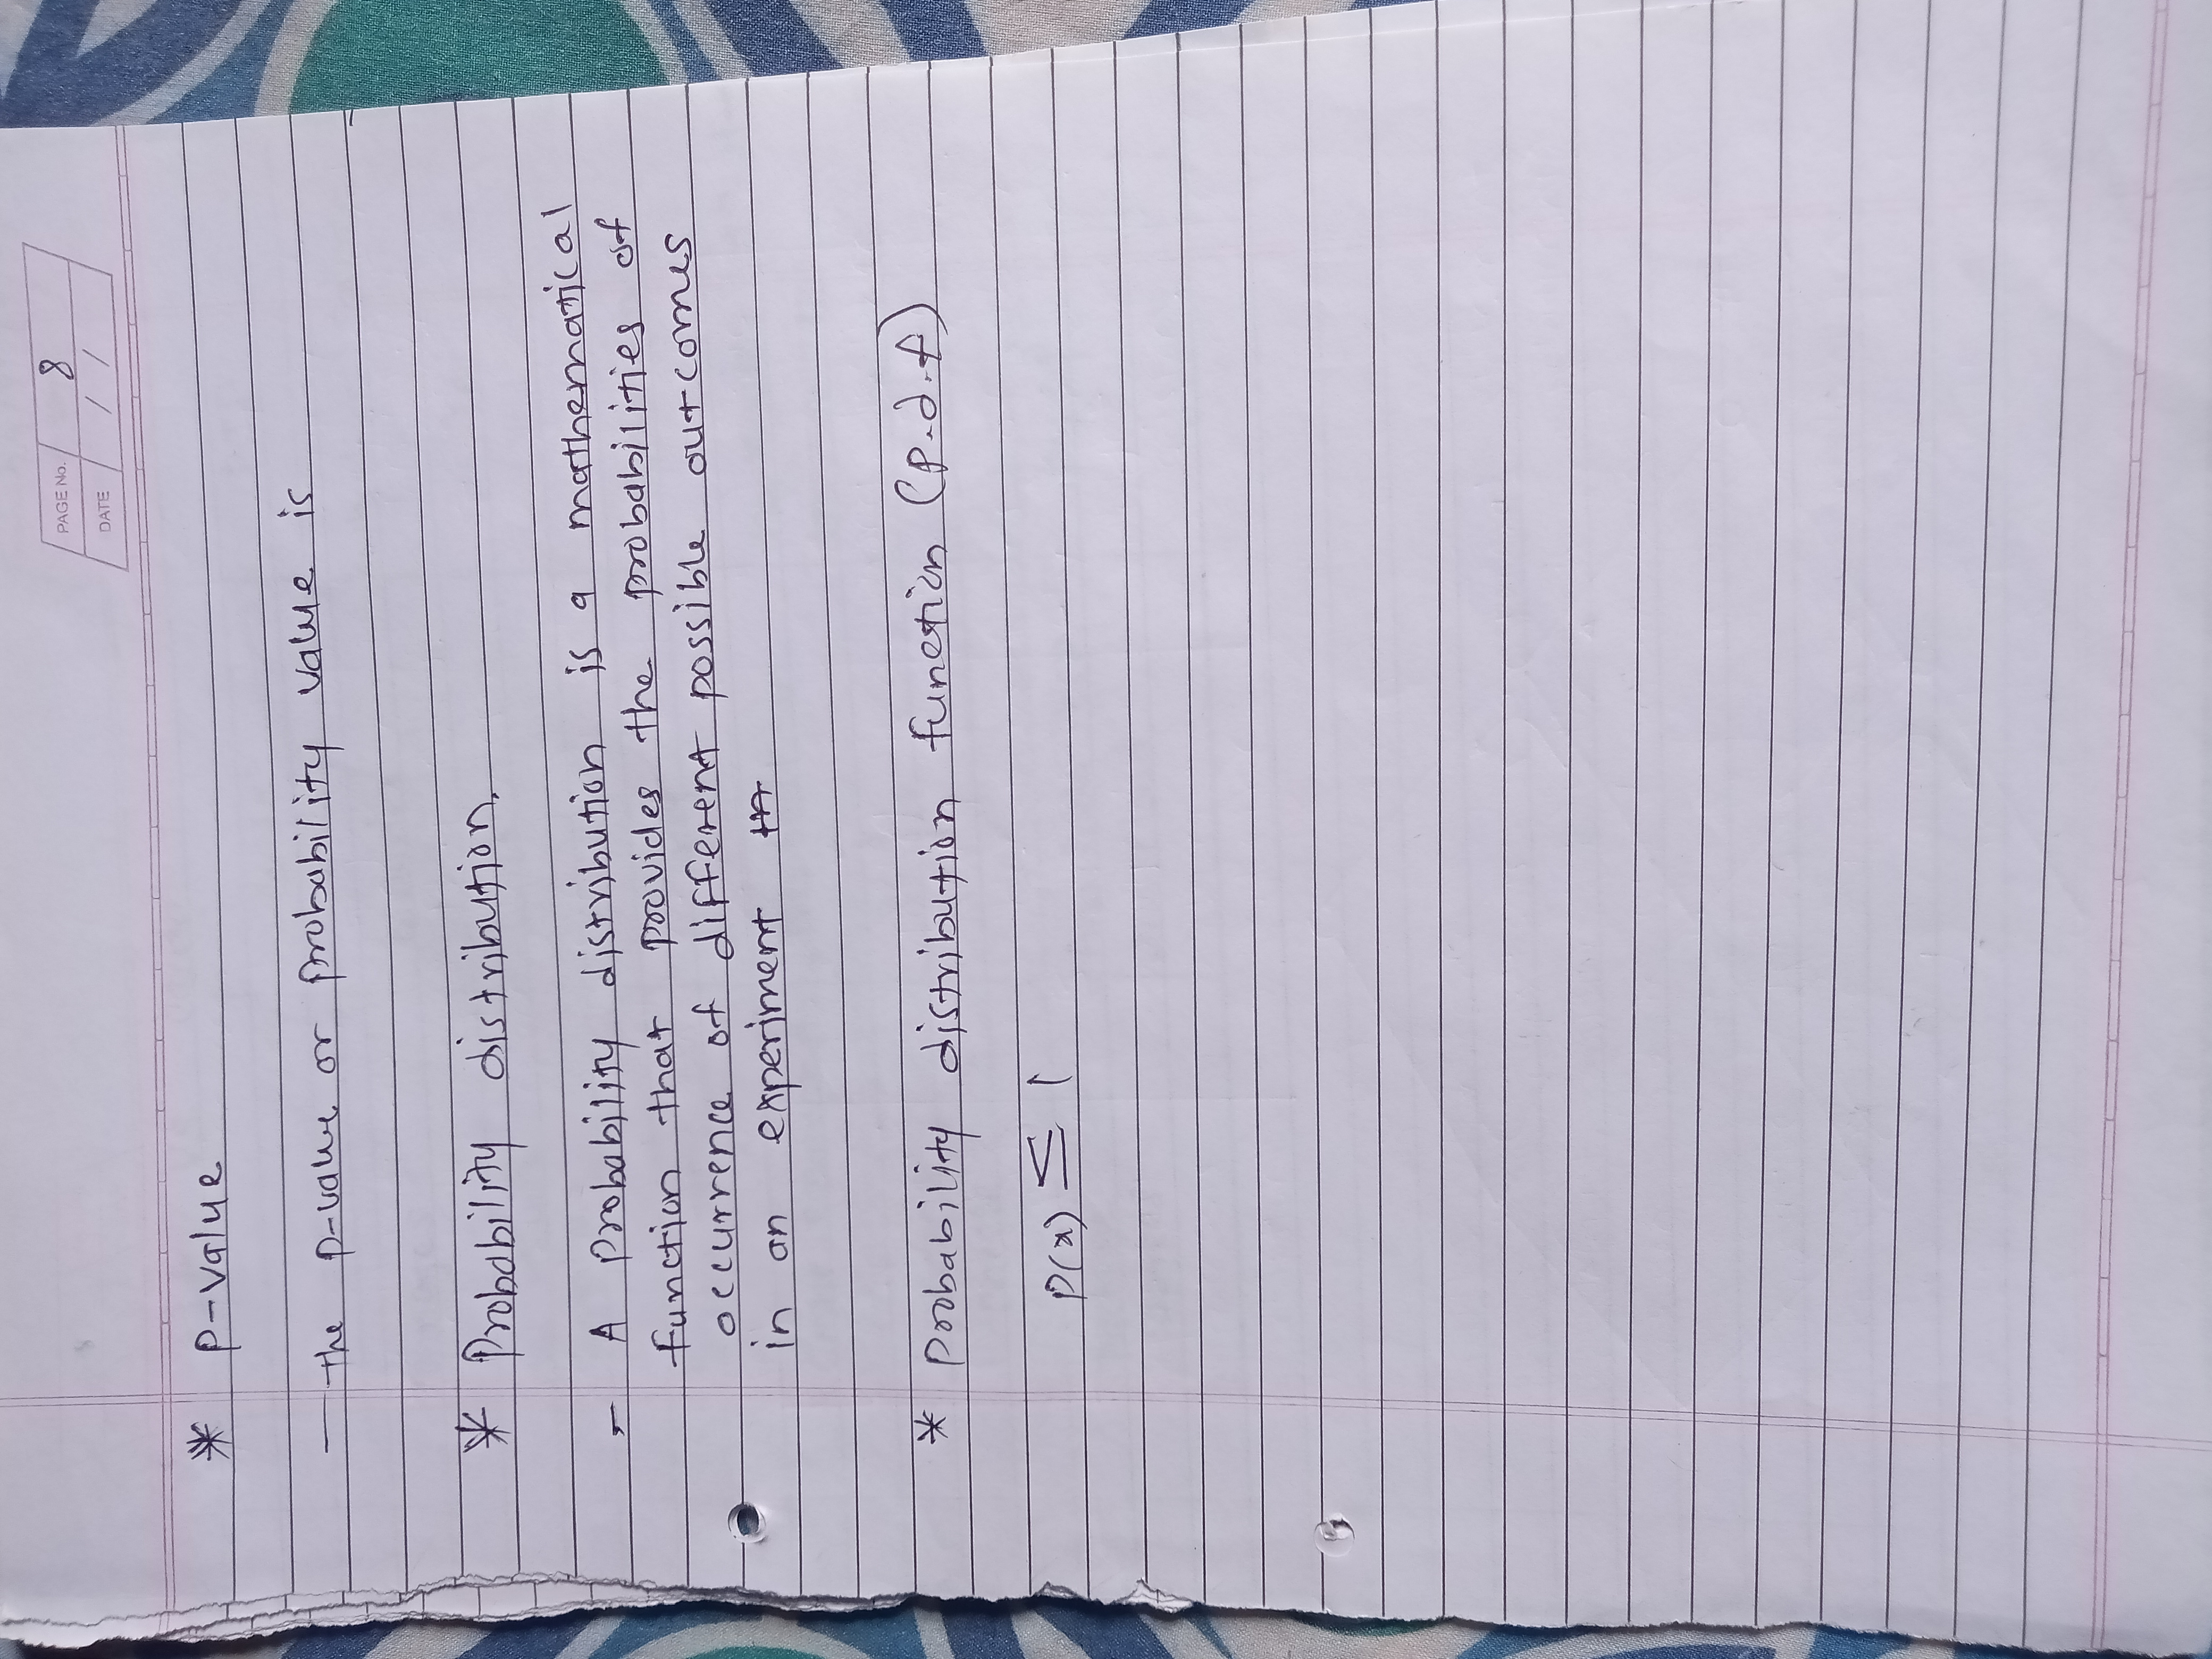 PAGE No. 8
DATE / /
* P-value
- the p-value or probability value is
* Probability distribution.
- A probability distribution is a mathematical
function that provides the probabilities of
occurrence of different possible outcomes
in an experiment
* Probability distribution function (p.d.f)
P(x) ≤ 1